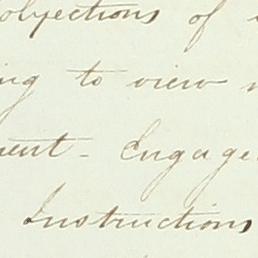 objections of
ing to view
ment - Engage
Instructions